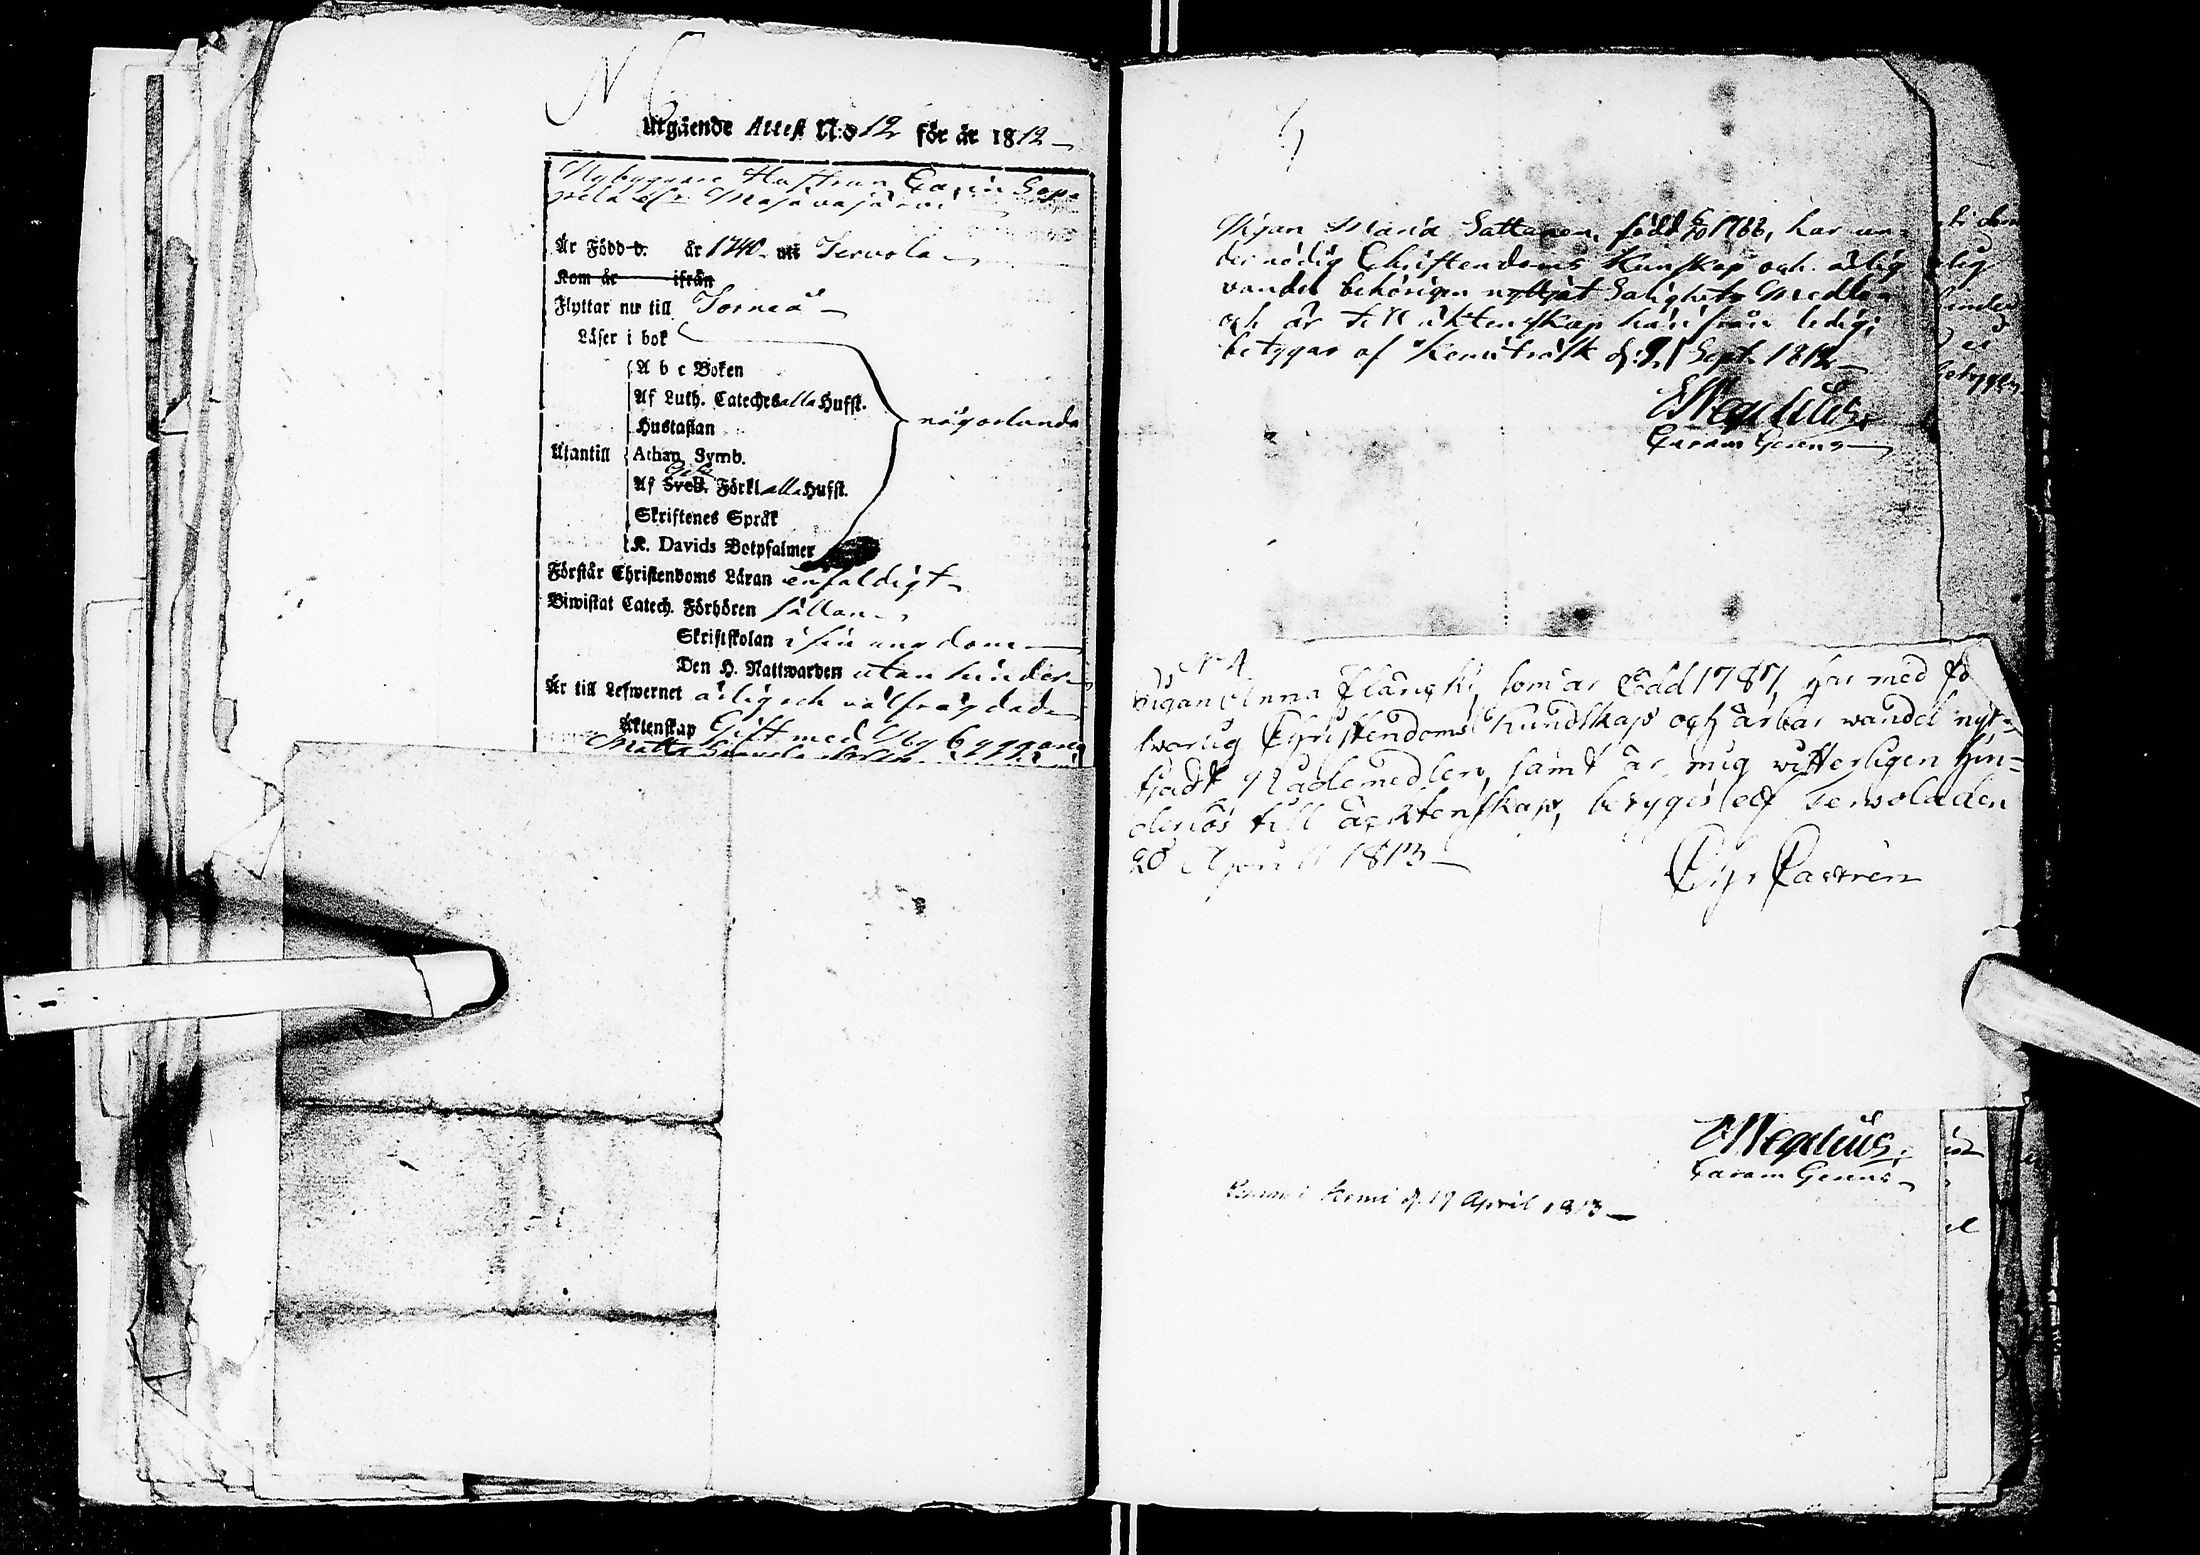 N 6
Utgående Attest N:o 12 för år 1812
Nybyggare Hustrun Carin
Är Född d. år 1740. uti Tervola
Kom år ifrån
Flyttar nu till Torneå
Läser i bok
A b c Boken
Af Luth. Cateches alla Hufst.
Hustaflan
någorlunda
Utantill
Athan. Symb.
Af Sveb. Förkl alla Hufst.
Skriftenes Språk
K. Davids Botpsalmer
Förstår Christendoms Läran enfaldigt
Biwistat Catech. Förhören sällan
Skriftskolan i sin ungdom
Den H. Nattwarden utan hinder
Är till Lefwernet ärlig och välfrägdad
Äktenskap Gift med Nybyggaren
Matts
Pigan Maria Sattanen, född 1766, har un-
der nödig Christendoms Kunskap och ärlig
vandel behörigen nyttjat Salighets Medlen
och är till äktenskap härifrån ledig;
betygar af Kemiträsk d. 21 Sept. 1812
E W Ceplius
Garam Gerens
N 4
Pigan Anna som är Född 1787, har med för-
swarlig Christendoms Kundskap och ärbar wandel nyt-
tjadt Nådemedlen, samt är mig witterligen hin-
derlös till äcktenskap, betyges af Tervola den
20 April 1813
Chr Castrén
Garam Gerens
Kemi d. 19 April 1813